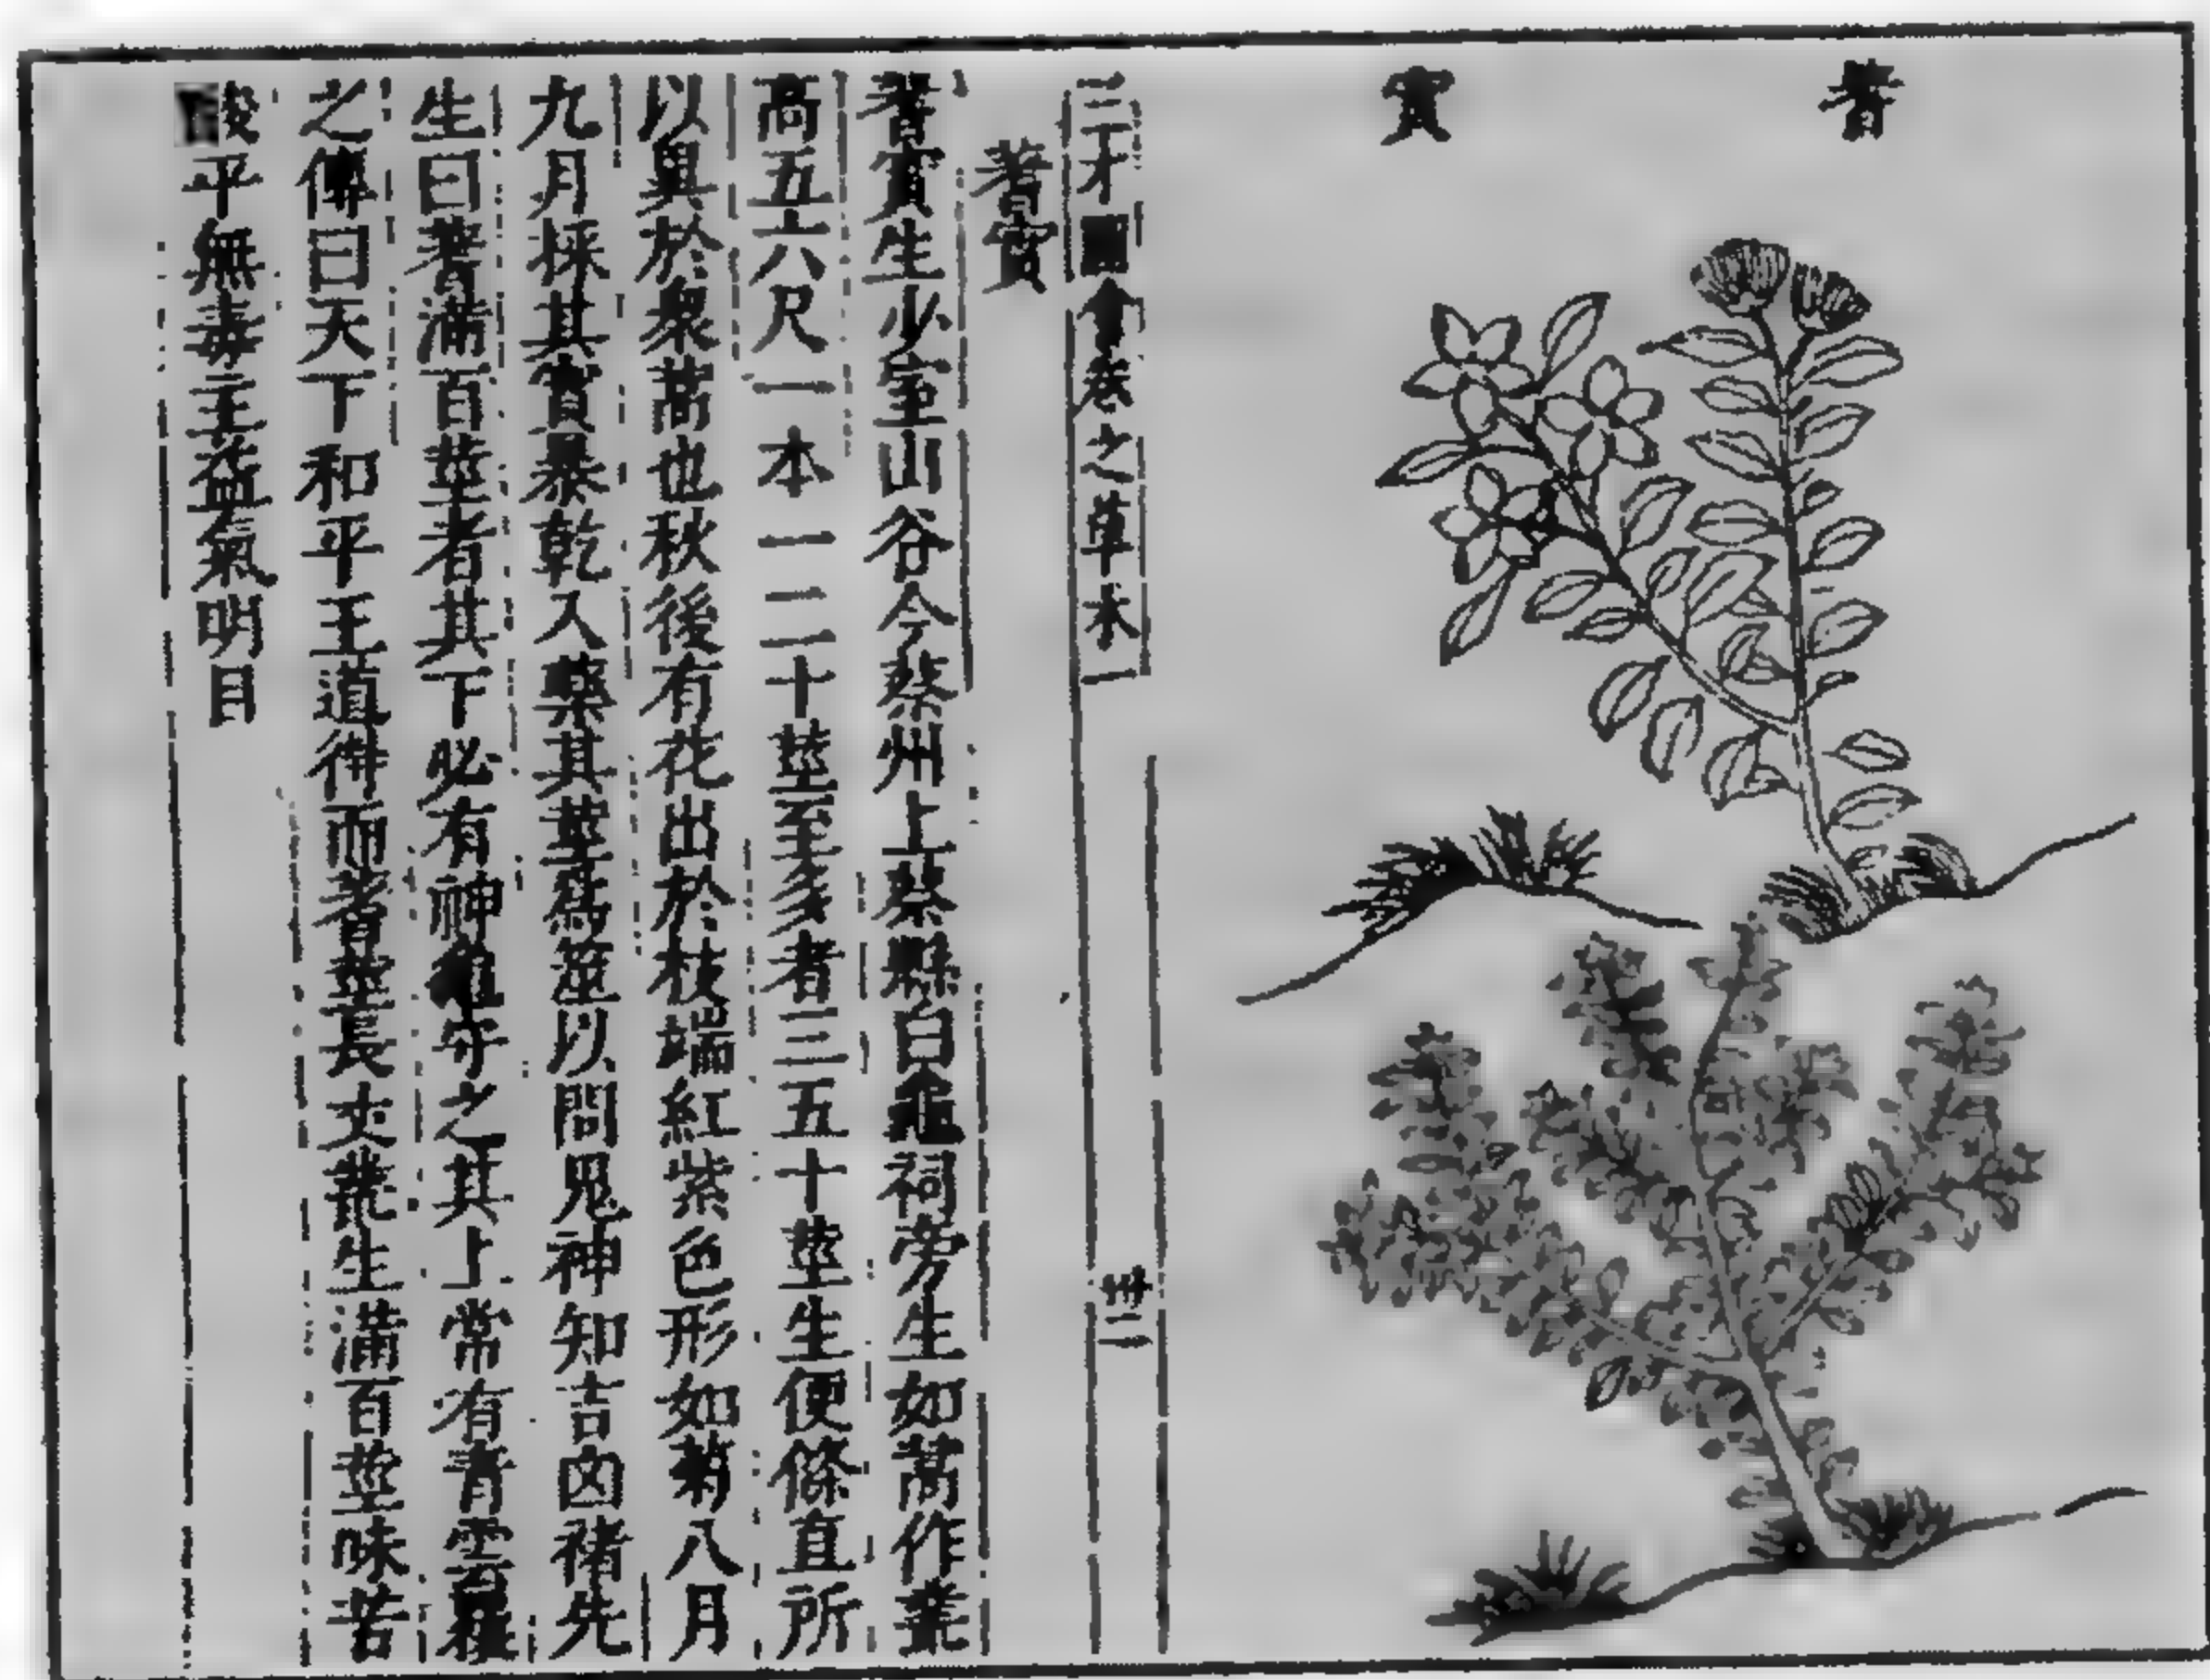 蓍實
三才圖會卷之草木一
卅二
蓍實
蓍實生少室山谷今蔡州上蔡縣白龜祠旁生如蒿作叢
高五六尺一本一二十莖至多者三五十莖生便條直所
以異於衆蒿也秋後有花出於枝端紅紫色形如菊八月
九月採其實暴乾入藥其莖爲筮以問鬼神知吉凶褚先
生曰蓍滿百莖者其下必有神龜守之其上常有青雲覆
之傳曰天下和平王道得而蓍莖長丈叢生滿百莖味苦
酸平無毒主益氣明目